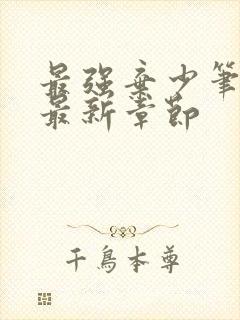 最强弃少笔
最新章节
千鸟本尊